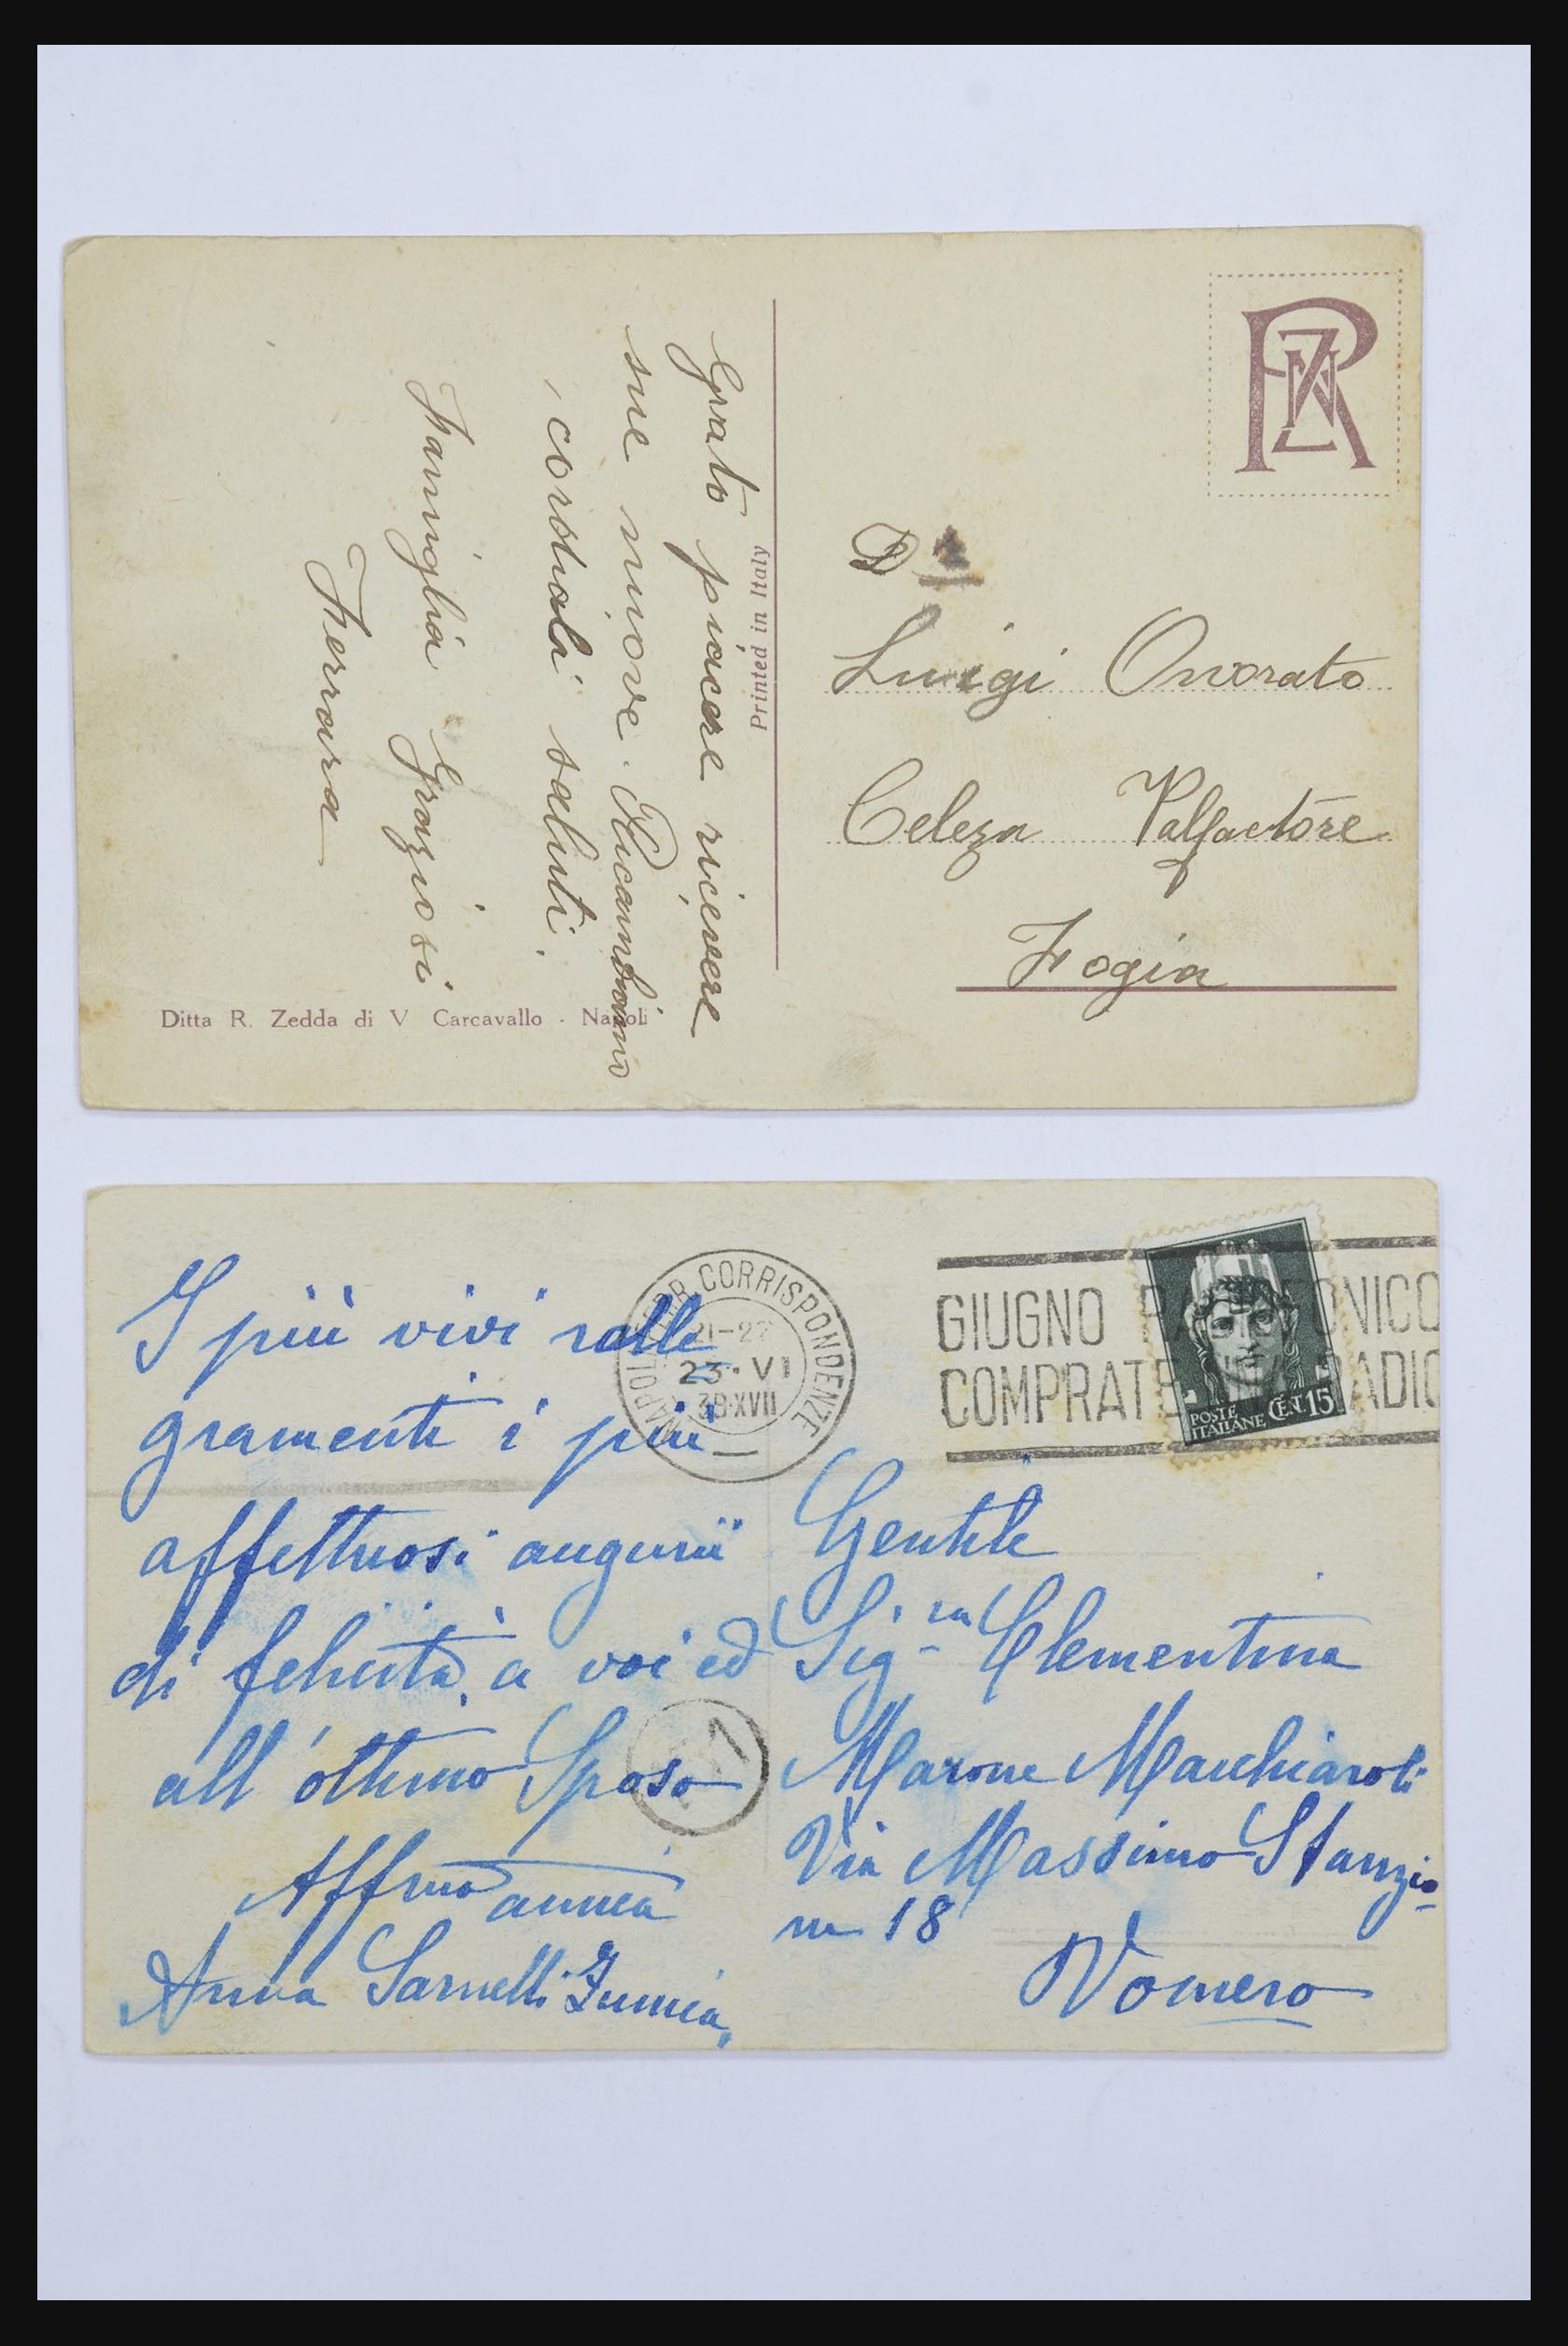 Grato piacere ricevere
sue nuove. Ricambiamo
i cordiali saluti.
Famiglia Graziosi
Ferrara
Printed in Italy
Ditta R. Zedda di V Carcavallo - Napoli
RZN
D
Luigi Onorato
Celeza Valfactore
Fogia
I più vivi ralle
gramenti i più
affettuosi augurii
di felicità a voi ed
all'ottimo Sposo
Affma amica
Anna Sarnelli Zumia
NAPOLI FERR. CORRISPONDENZE
21-22
23·VI
39·XVII
GIUGNO RADIOFONICO
COMPRATE UNA RADIO
POSTE
ITALIANE CENT. 15
Gentile
Sig.ra Clementina
Marone Mauchiaroli
Via Massimo Stanzio-
ne 18
Vomero